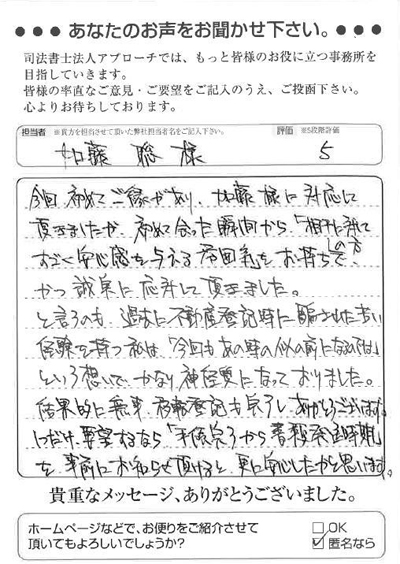 ●●● あなたのお声をお聞かせ下さい。●●●
司法書士法人アプローチでは、もっと皆様のお役に立つ事務所を
目指していきます。
皆様の率直なご意見・ご要望をご記入のうえ、ご投函下さい。
心よりお待ちしております。
担当者 ※貴方を担当させて頂いた弊社担当者名をご記入下さい。 評価 ※5段階評価
加藤 聡 様 5
今回、初めてご縁があり、加藤様に対応して
頂きましたが、初めて会った瞬間から、「相手に対して
すごく安心感を与える雰囲気」をお持ちの方で、
かつ誠実に応対して頂きました。
と言うのも、過去に不動産登記時に騙された苦い
経験を持つ私は、「今回もあの時の似の前になるのでは」
という想いで、かなり神経質になっておりました。
結果的に無事、登記も完了し、ありがとうございます。
1つだけ、要望するなら「手続完了から書類発送時期」
を、事前にお知らせ頂けると、更に安心したかと思います。
貴重なメッセージ、ありがとうございました。
ホームページなどで、お便りをご紹介させて
頂いてもよろしいでしょうか?
□OK
☑匿名なら